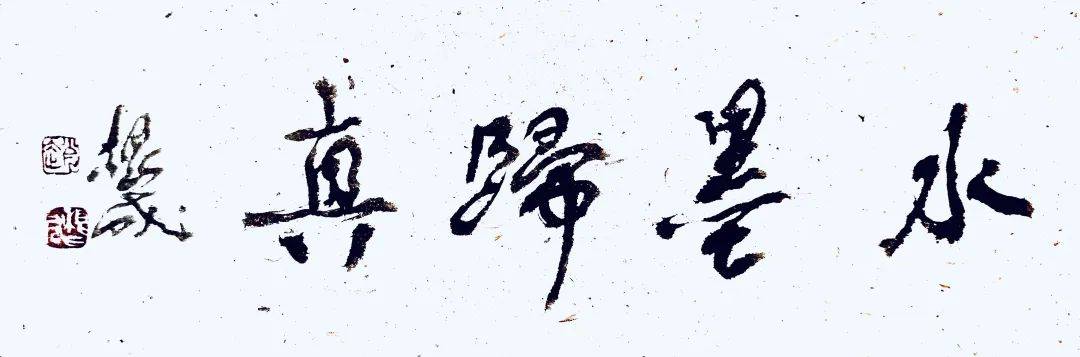 水墨歸真